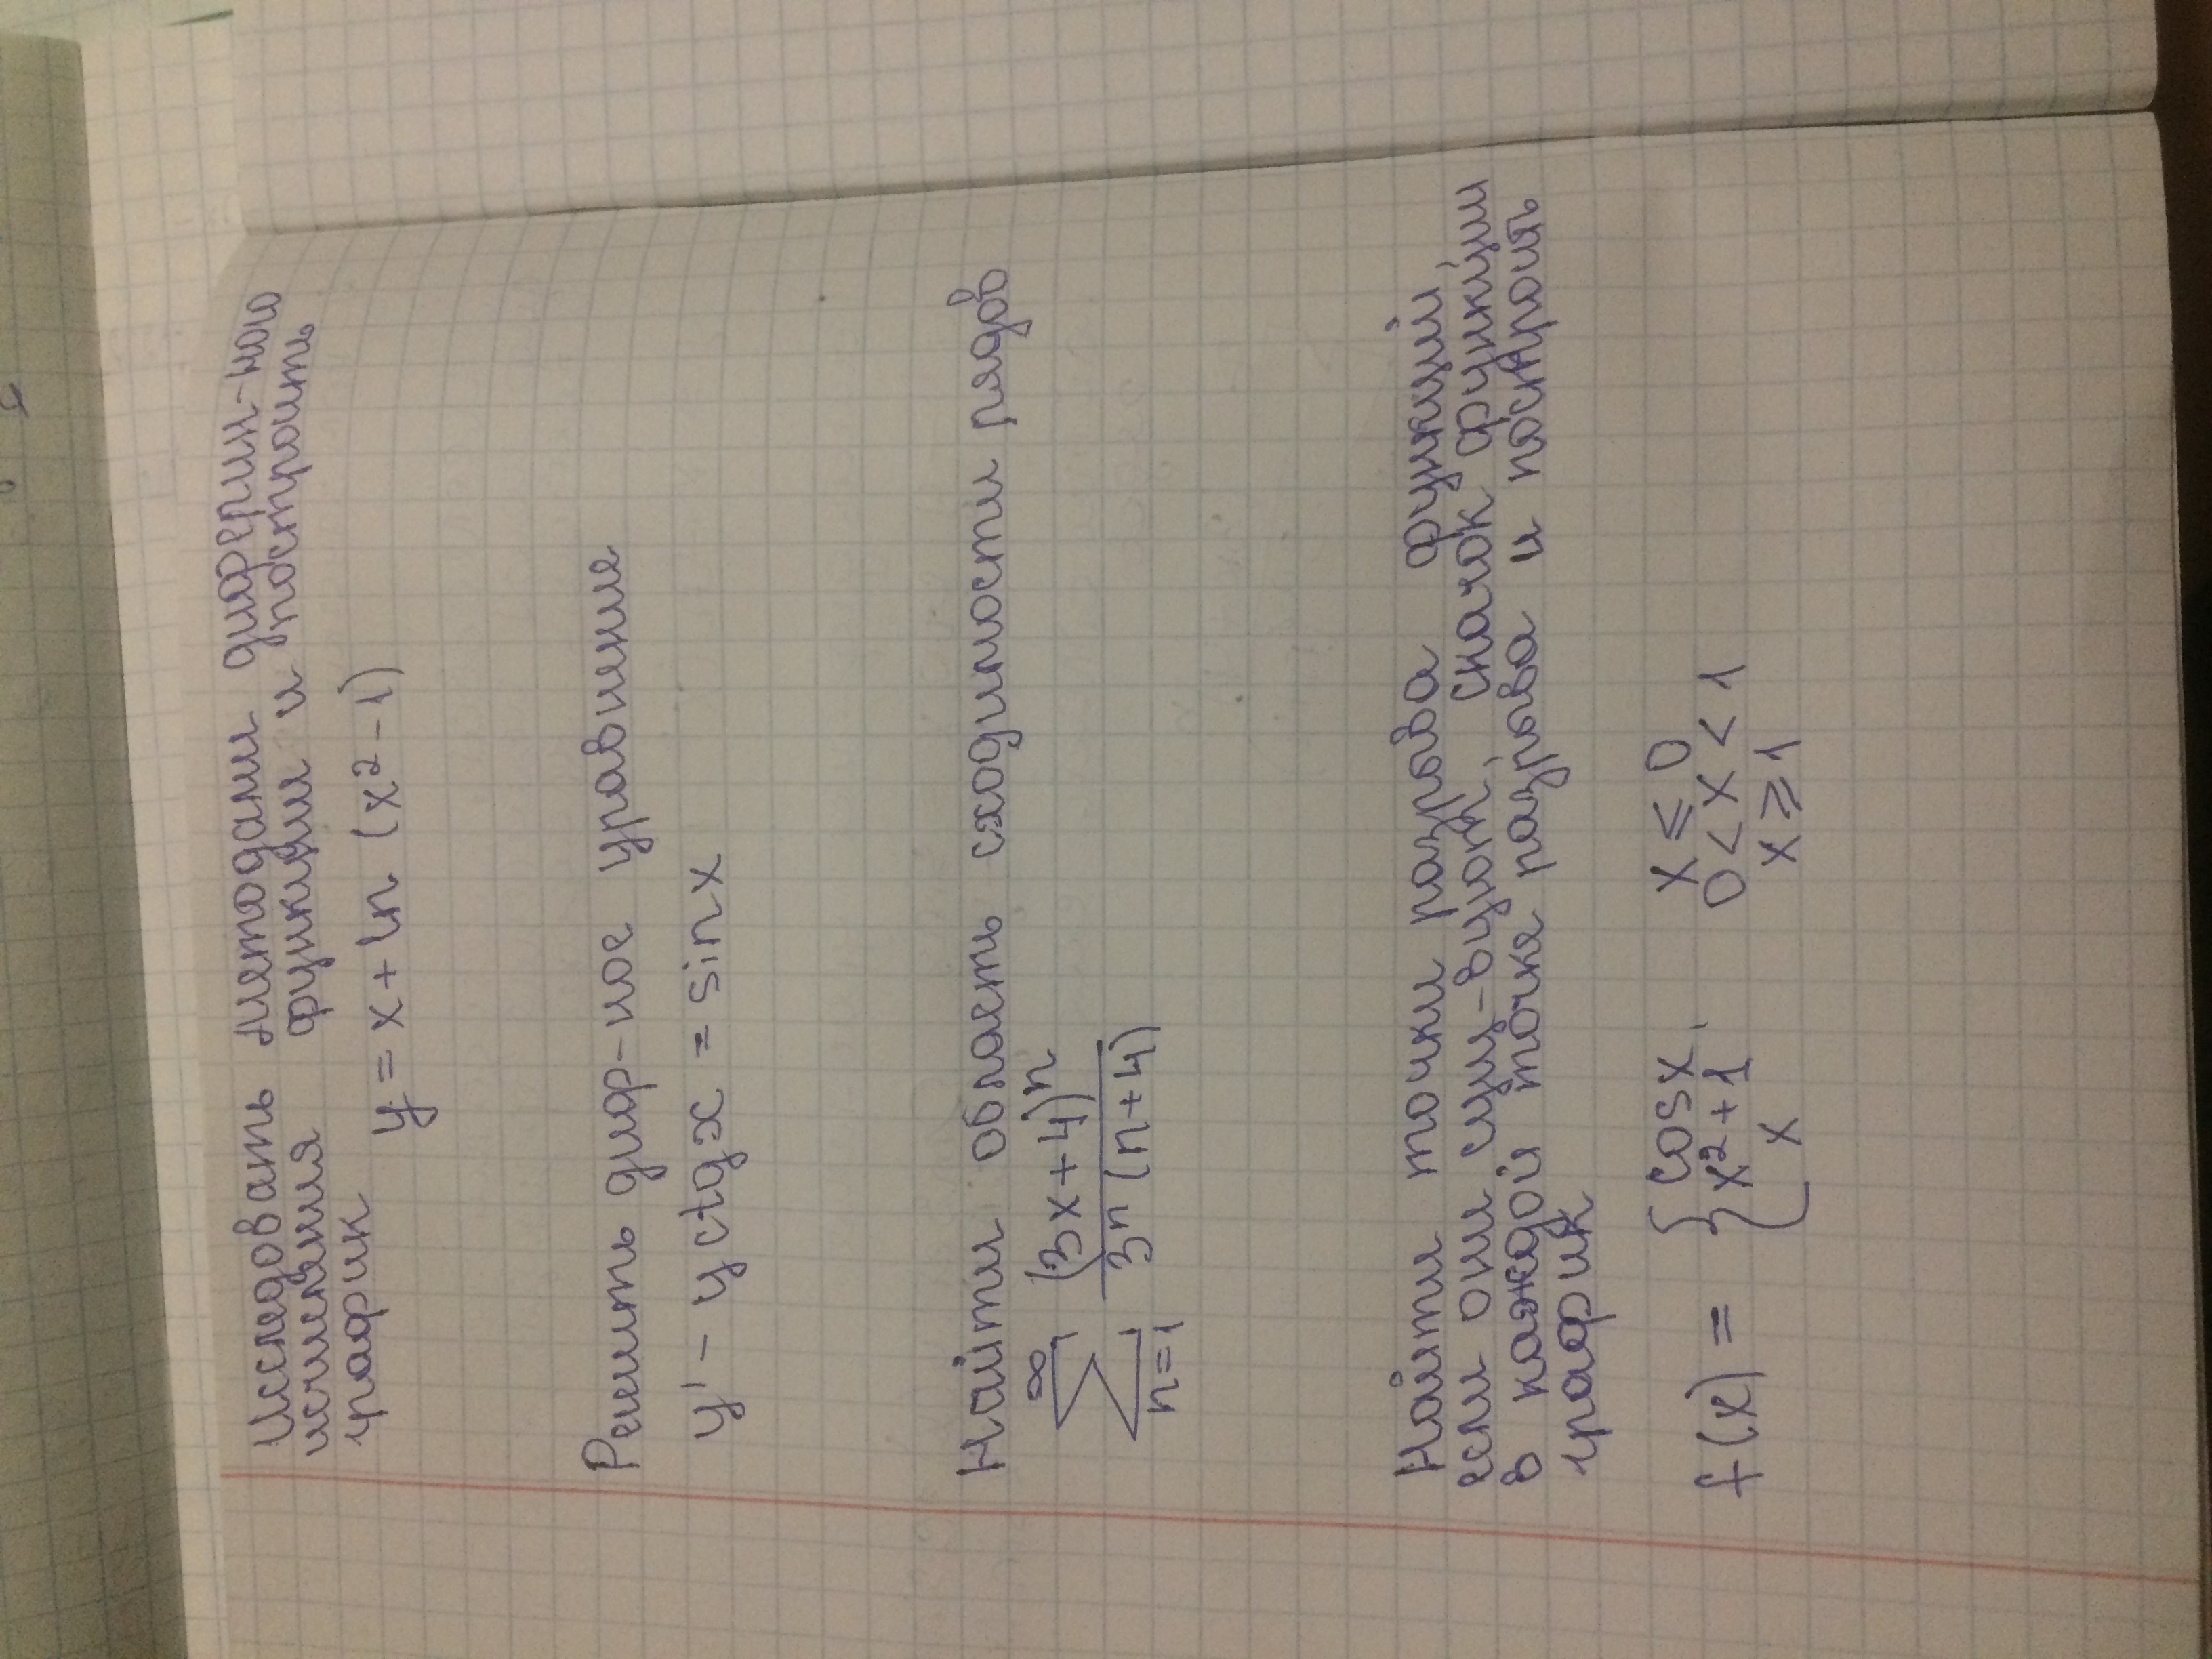 Исследовать методами диферен-ного
исчисления функции и построить
график
y = x + ln (x² - 1)
Решить диф-ное уравнение
y' - y ctg x = sin x
Найти область сходимости рядов
∞
∑ (3x+4)ⁿ / 3ⁿ (n+4)
n=1
Найти точки разрыва функции,
если они сущ-вуют, скачок функции
в каждой точке разрыва и построить
график
f(x) = { cos x, x ≤ 0
x² + 1 0 < x < 1
x x ≥ 1